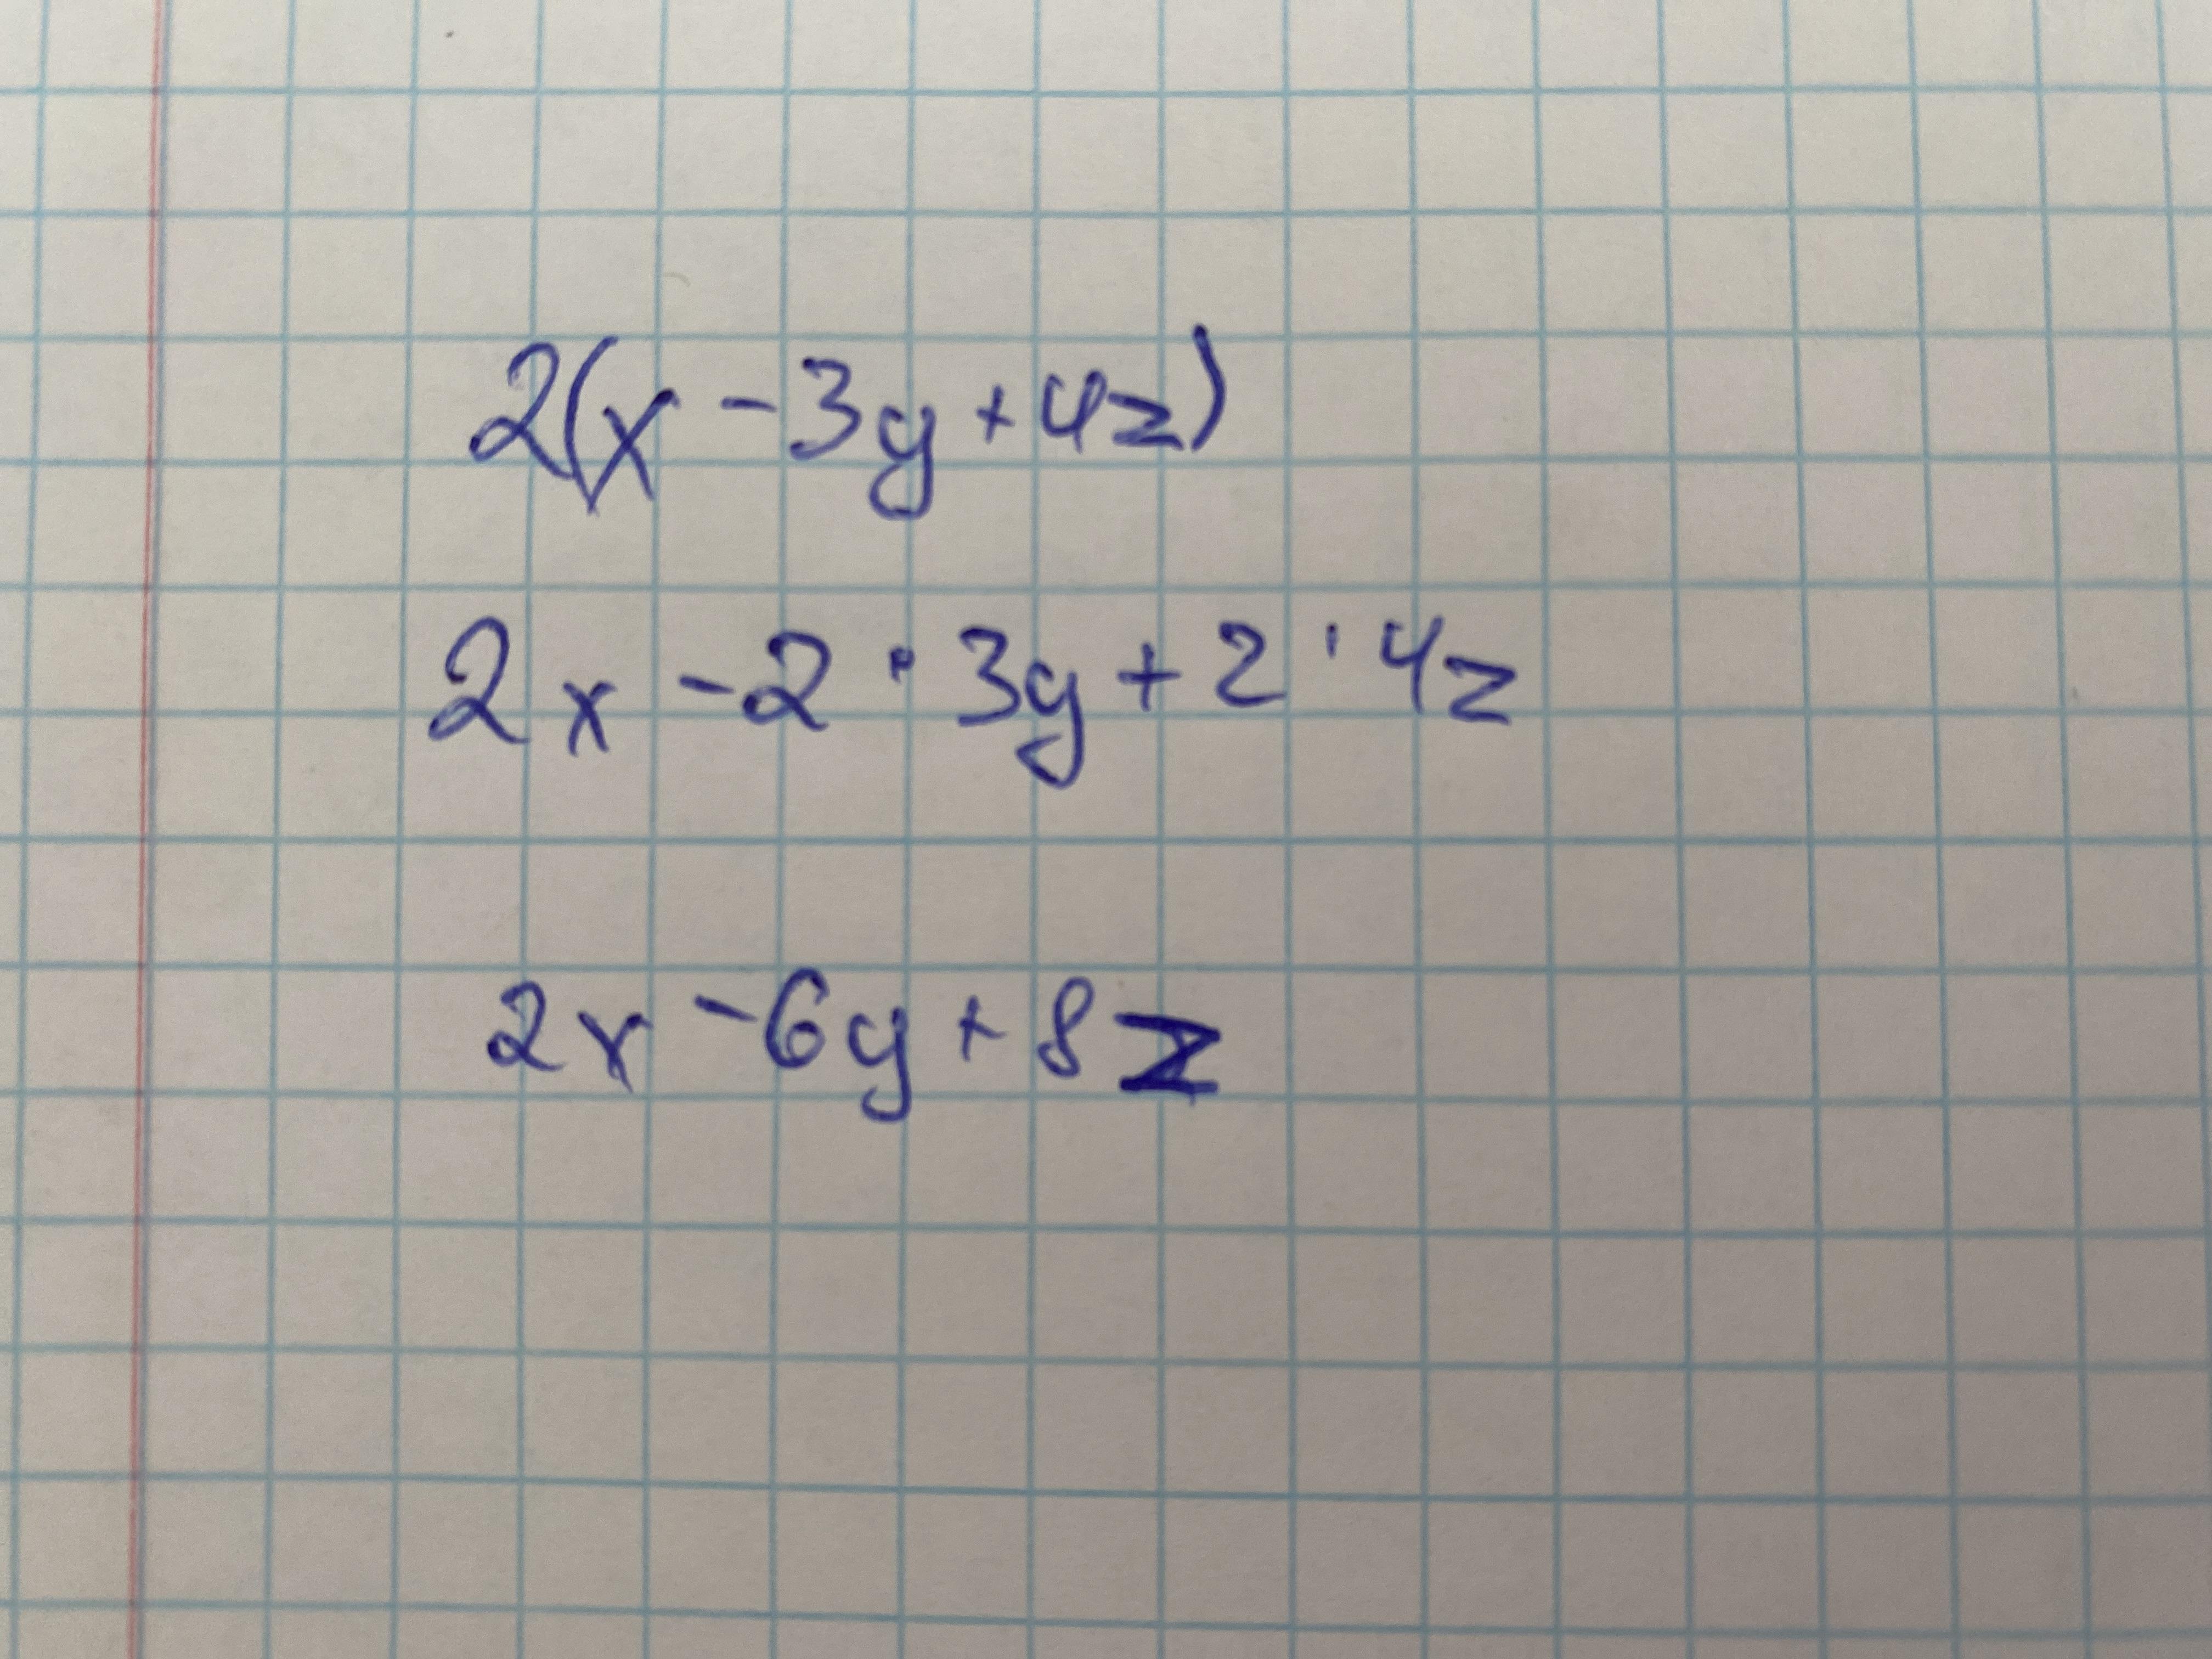 2(x - 3y + 4z)
2x - 2 · 3y + 2 · 4z
2x - 6y + 8z